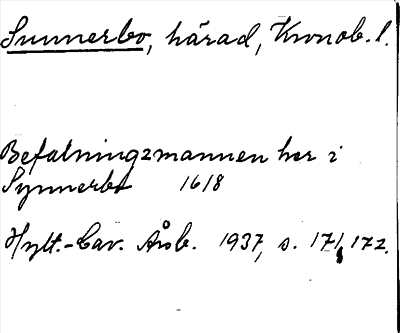 Sunnerbo, härad, Kronob. l.
Befalningzmannen her i
Synnerbo 1618
Hylt.-Cav. Årsb. 1937, s. 171, 172.